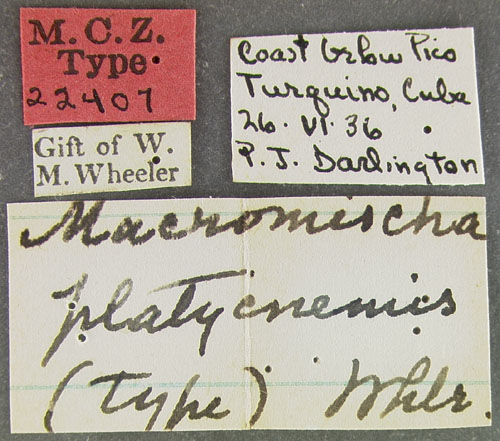 M. C. Z.
Type
22407
Gift of W.
M. Wheeler
Coast below Pico
Turquino, Cuba
26. VI. 36
P. J. Darlington
Macromischa
platycnemis
(type) Whlr.